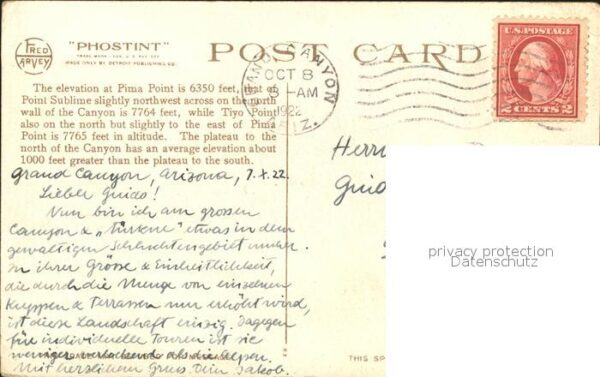 FRED HARVEY
"PHOSTINT"
TRADE MARK
MADE ONLY BY DETROIT PUBLISHING CO.
POST CARD
GRAND CANYON
OCT 8
8-AM
1922
ARIZ.
U.S. POSTAGE
2 CENTS 2
The elevation at Pima Point is 6350 feet, that of
Point Sublime slightly northwest across on the north
wall of the Canyon is 7764 feet, while Tiyo Point
also on the north but slightly to the east of Pima
Point is 7765 feet in altitude. The plateau to the
north of the Canyon has an average elevation about
1000 feet greater than the plateau to the south.
Grand Canyon, Arizona, 7.X.22.
Lieber Guido!
Nun bin ich am grossen
Canyon & "türkne" etwas in dem
gewaltigen Schluchtengebiet umher.
In ihrer Grösse & Einheitlichkeit,
die durch die Menge von einzelnen
Kuppen & Terrassen nur erhöht wird,
ist diese Landschaft einzig. Dagegen
für individuelle Touren ist sie
weniger verlockend als die Alpen.
Mit herzlichem Gruss Dein Jakob.
Herrn
Guido
privacy protection
Datenschutz
THIS SP